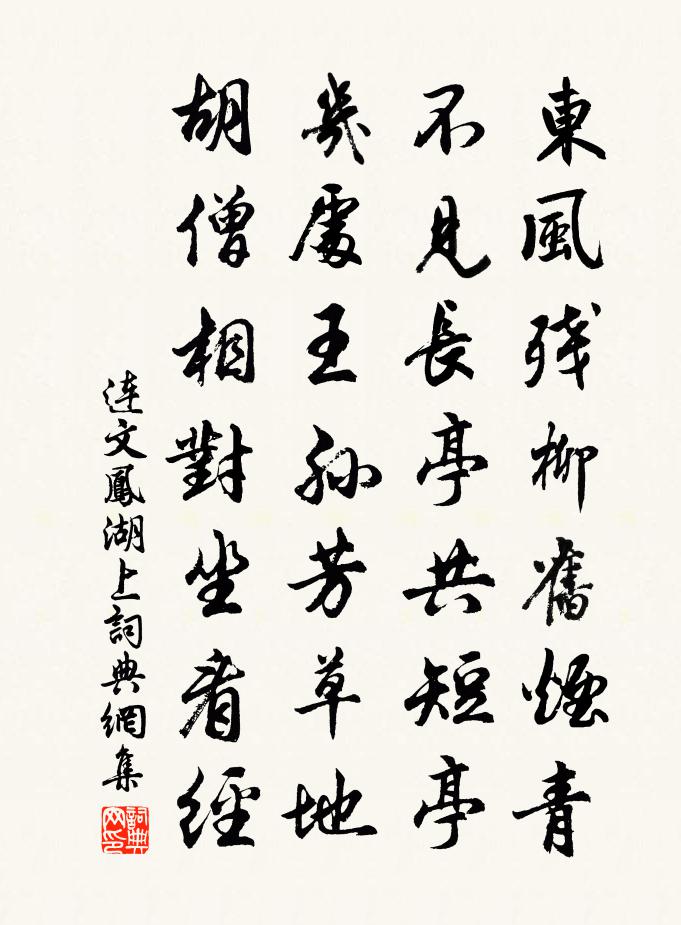 東風残柳舊煙青
不見長亭共短亭
幾處王孫芳草地
胡僧相對坐看經
連文鳳湖上詞典網集
詞典網印